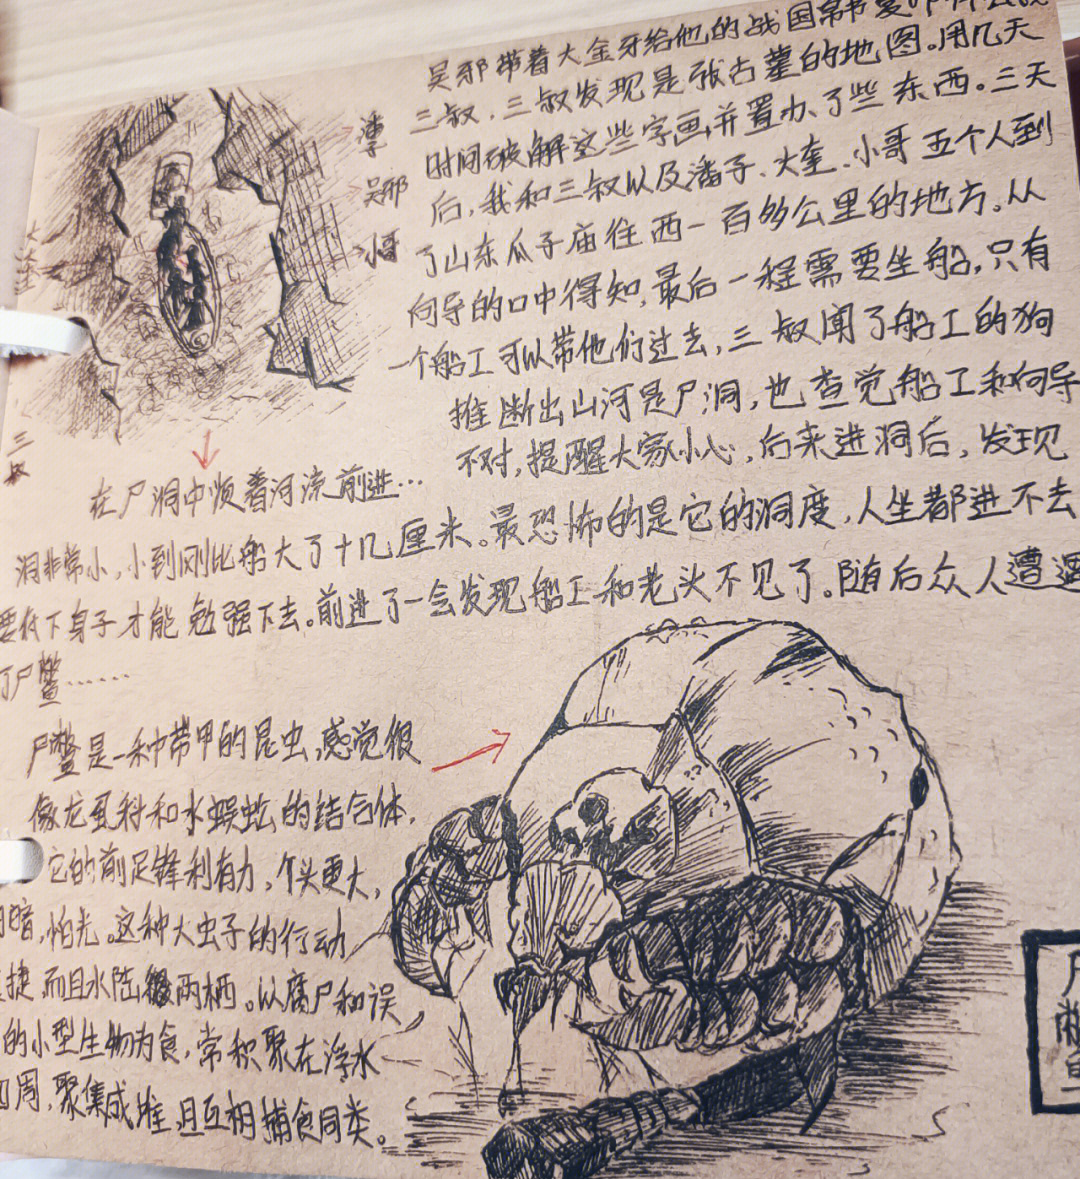 吴邪带着大金牙给他的战国帛书复印件去找
三叔,三叔发现是张古墓的地图。用几天
时间破解这些字画,并置办了些东西。三天
后,我和三叔以及潘子、大奎、小哥五个人到
了山东瓜子庙往西一百多公里的地方。从
向导的口中得知,最后一程需要坐船,只有
一个船工可以带他们过去,三叔闻了船工的狗
推断出山河是尸洞,也查觉船工和向导
不对,提醒大家小心,后来进洞后,发现
吴邪
小哥
大奎
三叔
在尸洞中顺着河流前进…
洞非常小,小到刚比船大了十几厘米。最恐怖的是它的洞度,人坐都进不去
要低下身子才能勉强下去。前进了一会发现船工和老头不见了。随后众人遭遇
了尸蟞……
尸蟞是一种带甲的昆虫,感觉很
像龙虱科和水蜈蚣的结合体,
它的前足锋利有力,个头更大,
暗,怕光。这种大虫子的行动
捷而且水陆两栖。以腐尸和误
的小型生物为食,常积聚在浮水
四周,聚集成堆,且互相捕食同类。
尸蟞